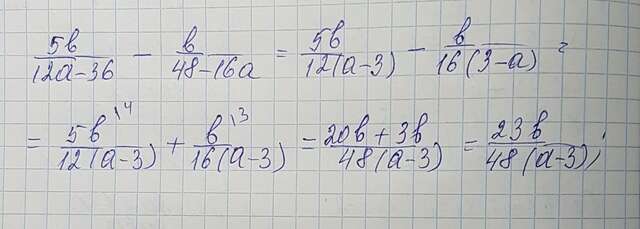 5b/(12a-36) - b/(48-16a) = 5b/(12(a-3)) - b/(16(3-a)) =
= 5b^{\4}/(12(a-3)) + b^{\3}/(16(a-3)) = (20b+3b)/(48(a-3)) = 23b/(48(a-3));